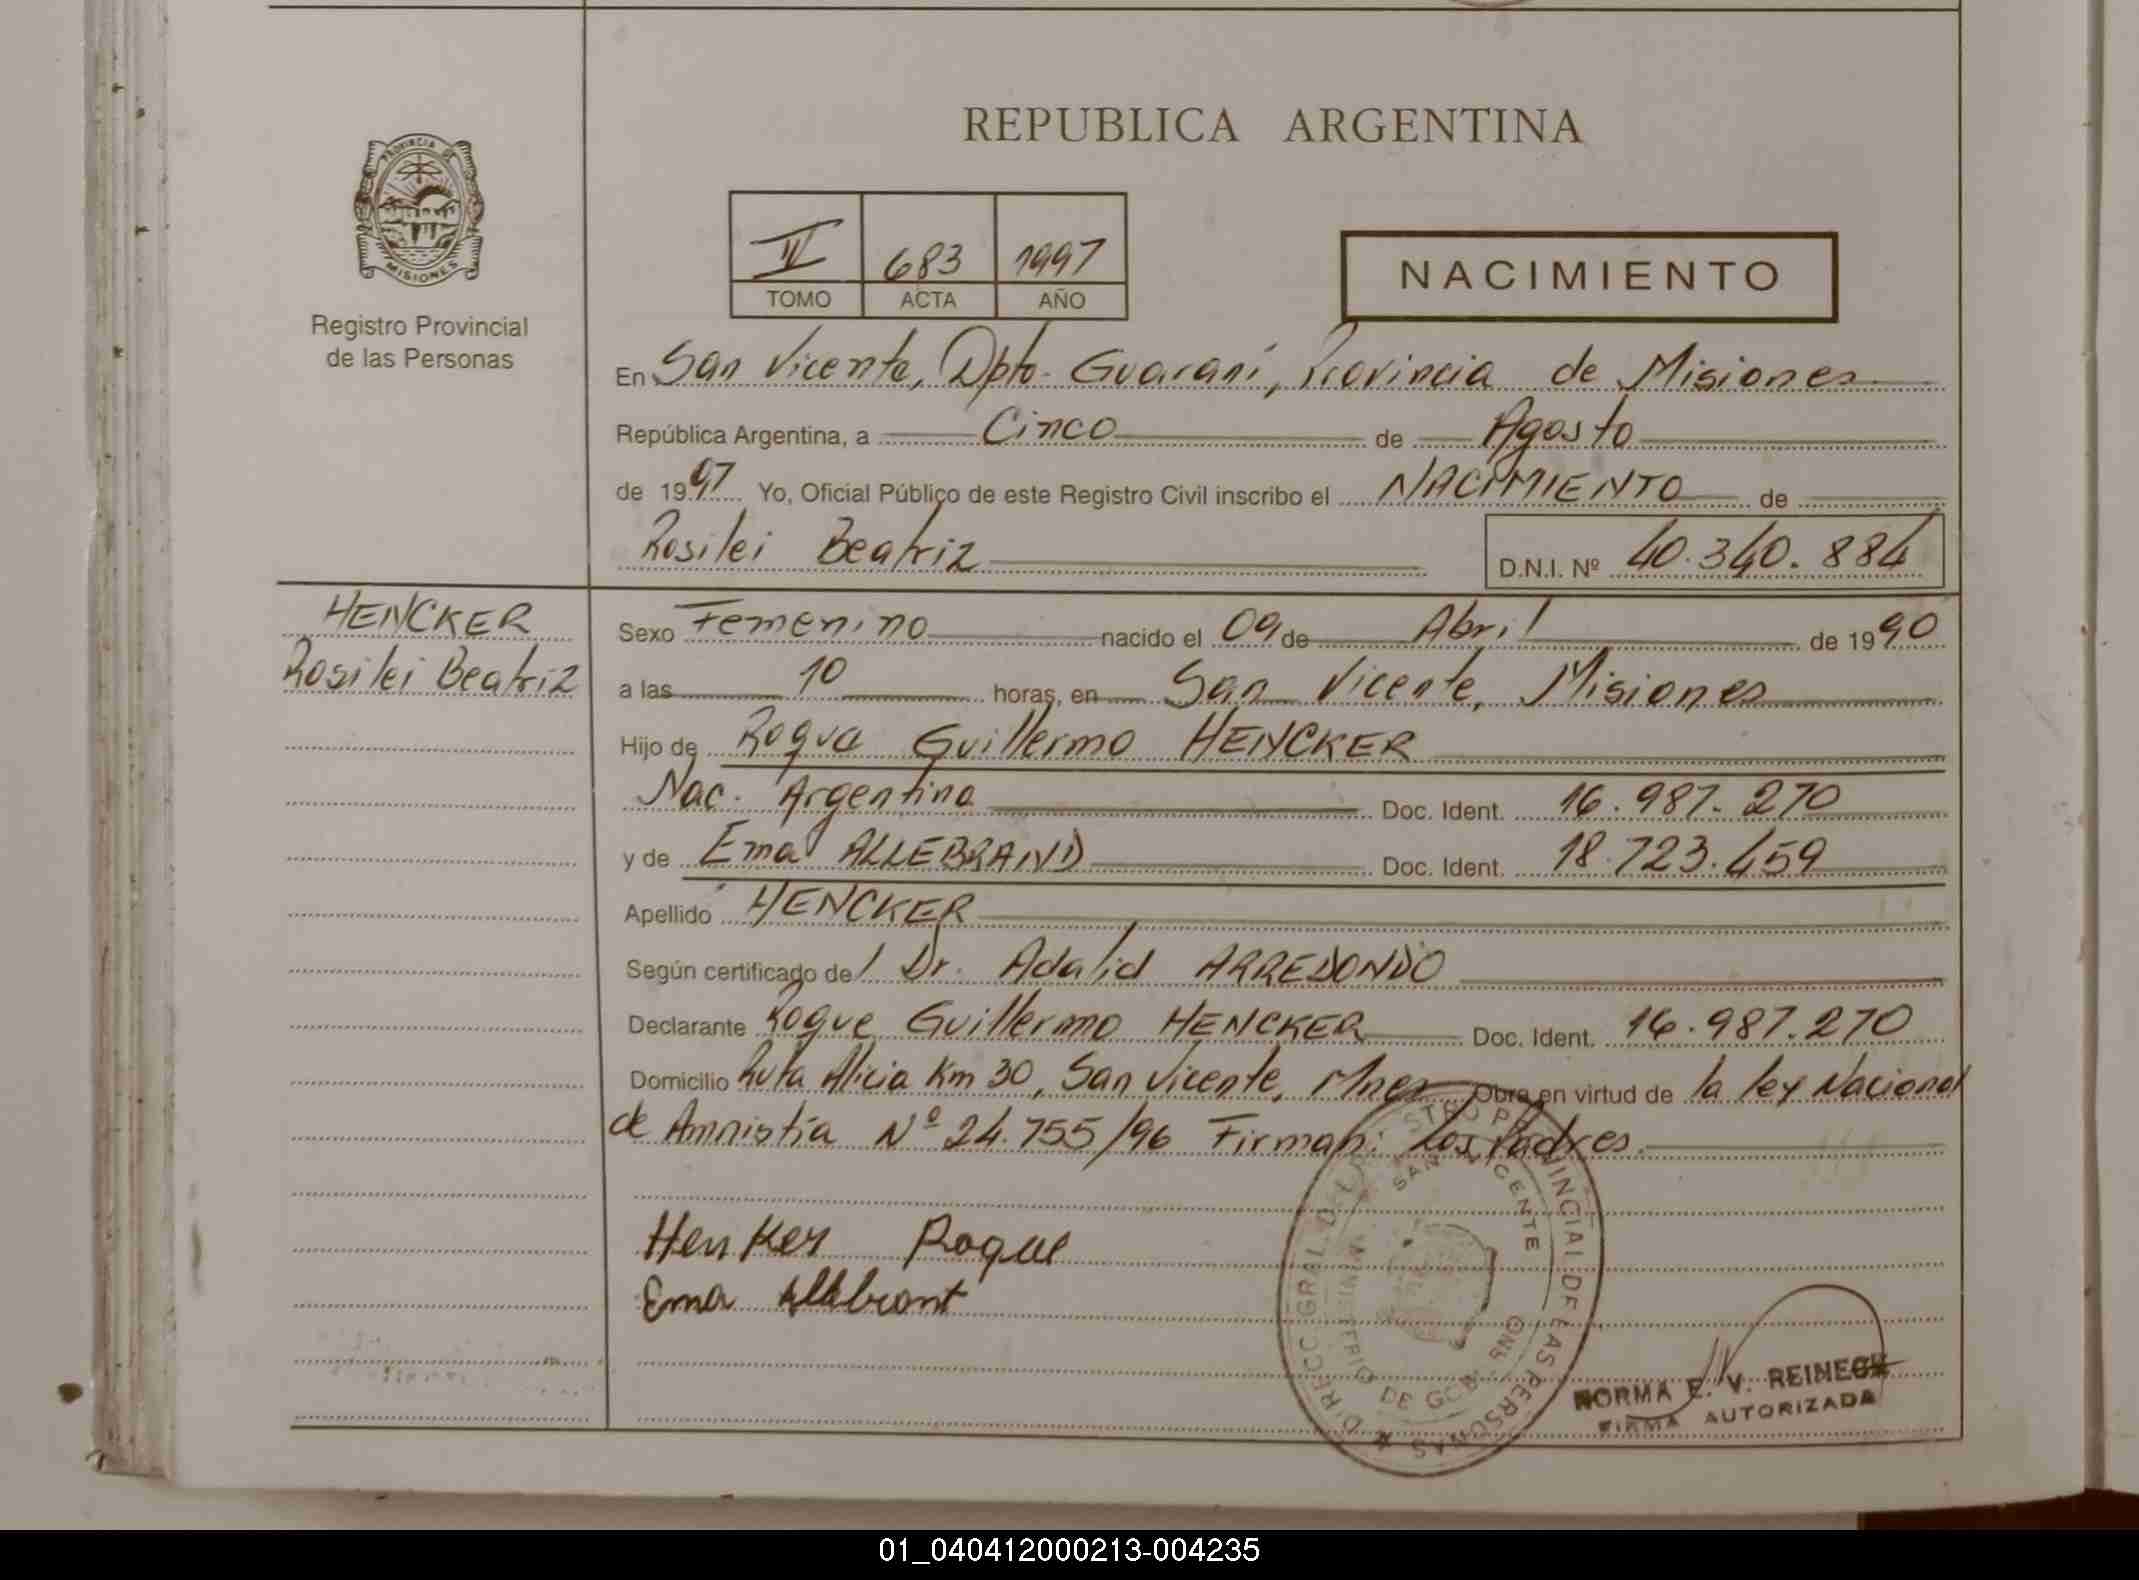 REPUBLICA ARGENTINA
PROVINCIA DE
MISIONES
Registro Provincial
de las Personas
IV 683 1997
TOMO ACTA AÑO
NACIMIENTO
En San Vicente, Dpto. Guaraní, Provincia de Misiones
República Argentina, a Cinco de Agosto
de 1997 Yo, Oficial Público de este Registro Civil inscribo el NACIMIENTO de
Rosilei Beatriz D.N.I. Nº 40.340.884
HENCKER
Rosilei Beatriz
Sexo Femenino nacido el 09 de Abril de 1990
a las 10 horas, en San Vicente, Misiones
Hijo de Roque Guillermo HENCKER
Nac. Argentina Doc. Ident. 16.987.270
y de Ema ALLEBRAND Doc. Ident. 18.723.459
Apellido HENCKER
Según certificado de Dr. Adalid ARREDONDO
Declarante Roque Guillermo HENCKER Doc. Ident. 16.987.270
Domicilio Ruta Alicia Km 30, San Vicente, Mnes Obra en virtud de la ley Nacional
de Amnistía Nº 24.755/96 Firman: Los Padres.
Henker Roque
Ema Allebrant
DIRECC. GRAL. DEL REGISTRO PROVINCIAL DE LAS PERSONAS
SAN VICENTE
DE GOB.
NORMA E. V. REINECK
FIRMA AUTORIZADA
01_040412000213-004235